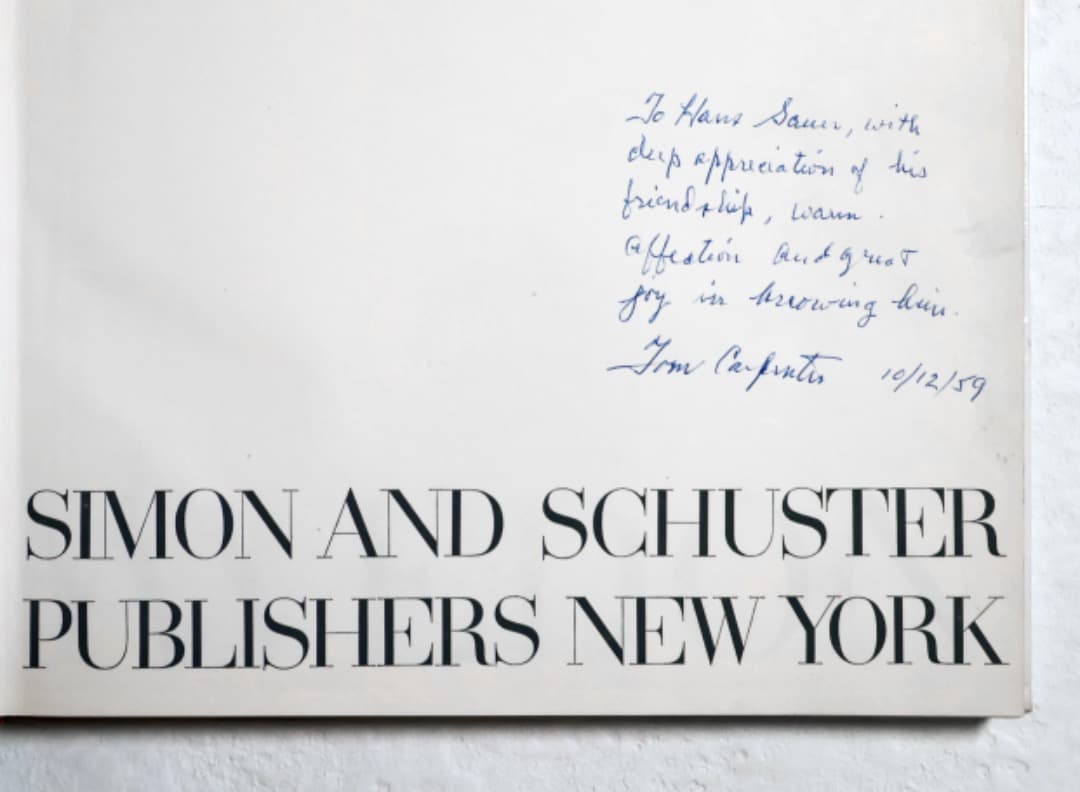 To Hans Sauer, with
deep appreciation of his
friendship, warm
affection and great
joy in knowing him.
Tom Carpenter 10/12/59
SIMON AND SCHUSTER
PUBLISHERS NEW YORK